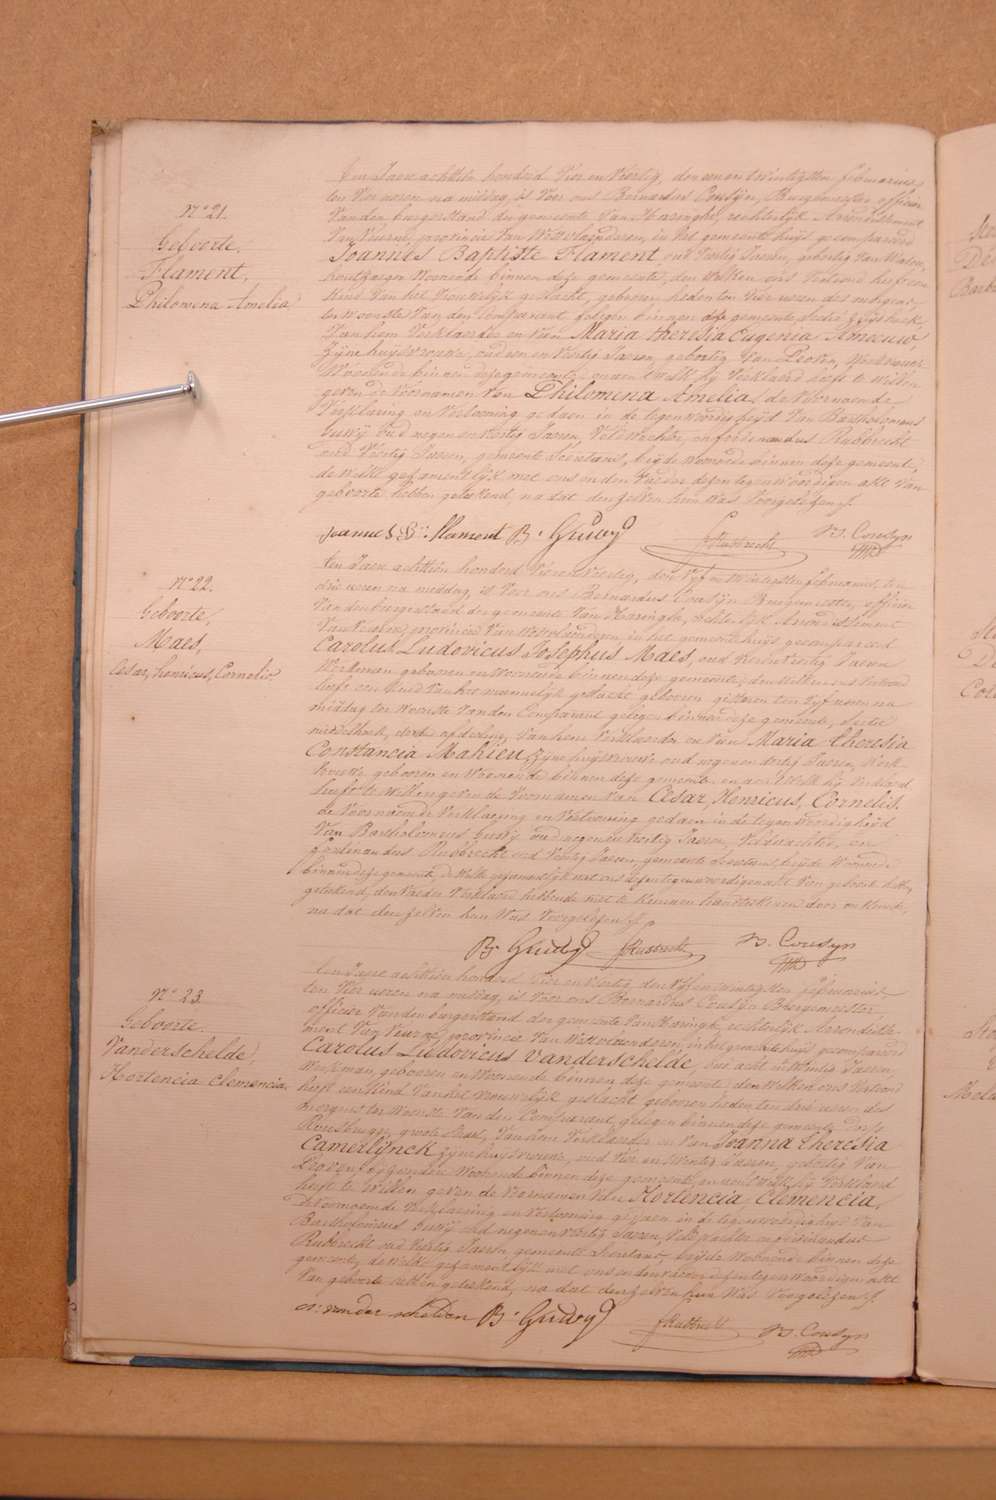 N.° 21.
Geboorte.
Flament.
Philomena Amelia
Ten Jaere achttien honderd Vier en Veertig, den een en twintigsten februarius
ten Vier ueren na middag, is Voor ons Bernardus Cousÿn, Burgemeester officier
Van den burgerstand der gemeente Van Haringhe, rechterlijk Arrondissement
Van Veurne, provincie Van Westvlaenderen, in het gemeentehuijs gecompareerd
Joannes Baptiste Flament oud Veertig Jaeren, geboortig Van Waton,
Woonende binnen deze gemeente, den welken ons Vertoond heeft een
Kind Van het Vrouwelijk geslacht, geboren heden ten Vier ueren des
ter Woonste Van den Comparant gelegen binnen deze gemeente Sectie
Van hem Verklaerder en Van Maria theresia Eugenia
zijne huijsvrouwe, oud een en Veertig Jaeren, geboortig Van
Woonende binnen deze gemeente en aen 't welk hij Verklaerd heeft te Willen
geven de Voornamen Van Philomena Amelia, de Voornoemde
Verklaering en Vertooning gedaen in de tegenwoordigheijd Van Bartholomeus
Guwij oud negen en Veertig Jaeren, Veldwachter, en ferdinandus Rubbrecht
oud Veertig Jaeren, gemeente Secretaris, beijde Woonende binnen deze gemeente,
de Welke gesamentlijk met ons en den Vader dezen tegenwoordigen akt Van
geboorte hebben geteekend, na dat den zelven hun Was Voorgelezen.
Joannes Bte flament B. Guwy f. Rubbrecht B. Cousyn
N.° 22.
Geboorte,
Maes,
Cesar, henricus, Cornelis
Ten Jaere achttien honderd Vier en Veertig, den Vijf en twintigsten februarius, ten
drie ueren na middag, is Voor ons Bernardus Cousÿn Burgemeester, officier
Van den burgerstand der gemeente Van Haringhe, rechterlijk Arrondissement
Van Veurne, provincie Van Westvlaenderen, in het gemeentehuijs gecompareerd
Carolus Ludovicus Josephus Maes, oud Jaeren
Werkman geboren en Woonende binnen deze gemeente, den Welken ons Vertoond
heeft een Kind Van het mannelijk geslacht geboren gisteren ten Vijf ueren na
middag ter Woonste Van den Comparant gelegen binnen deze gemeente, Sectie
afdeeling, Van hem Verklaerder en Van Maria theresia
Constancia Mahieu, zijne huijsvrouwe oud negen en dertig Jaeren,
geboren en Woonende binnen deze gemeente en aen 't Welk hij Verklaerd
heeft te Willen geven de Voornamen Van Cesar, Henricus, Cornelis.
de Voornoemde Verklaering en Vertooning gedaen in de tegenwoordigheijd
Van Bartholomeus Guwij oud negen en Veertig Jaeren, Veldwachter, en
ferdinandus Rubbrecht oud Veertig Jaeren, gemeente Secretaris, beijde Woonende
binnen deze gemeente, de Welke gesamentlijk met ons dezen tegenwoordigen akt Van geboorte hebben
geteekend, den Vader Verklaerd hebbende niet te Kunnen
na dat den zelven hun Was Voorgelezen.
B. Guwy f. Rubbrecht B. Cousyn
N.° 23.
Geboorte.
Vanderschelde,
Hortencia Clemencia.
Ten Jaere achttien honderd Vier en Veertig den Vijf en twintigsten februarius
ten Vier ueren na middag, is Voor ons Bernardus Cousÿn Burgemeester
officier Van den burgerstand der gemeente Van Haringhe, rechterlijk Arrondisse-
ment Van Veurne, provincie Van Westvlaenderen, in het gemeentehuijs gecompareerd
Carolus Ludovicus Vanderschelde, oud acht en twintig Jaeren,
Werkman, geboren en Woonende binnen deze gemeente, den Welken ons Vertoond
heeft een Kind Van het Vrouwelijk geslacht geboren heden ten drie ueren des
morgens ter Woonste Van den Comparant, gelegen binnen deze gemeente dorp
Rousbrugge, groote straet, Van hem Verklaerder en Van Joanna theresia
Camerlÿnck, zijne huijsvrouwe, oud Vier en twintig Jaeren, geboortig Van
Woonende binnen deze gemeente, en aen 't welk hij Verklaerd
heeft te Willen geven de Voornamen Van Hortencia Clemencia,
De Voornoemde Verklaering en Vertooning gedaen in de tegenwoordigheijd Van
Bartholomeus Guwij oud negen en Veertig Jaeren, Veldwachter en ferdinandus
Rubbrecht oud Veertig Jaeren, gemeente Secretaris, beijde Woonende binnen deze
gemeente, de Welke gesamentlijk met ons en den Vader dezen tegenwoordigen akt
Van geboorte hebben geteekend, na dat den zelven hun Was Voorgelezen.
van der schelden B. Guwy f. Rubbrecht B. Cousyn